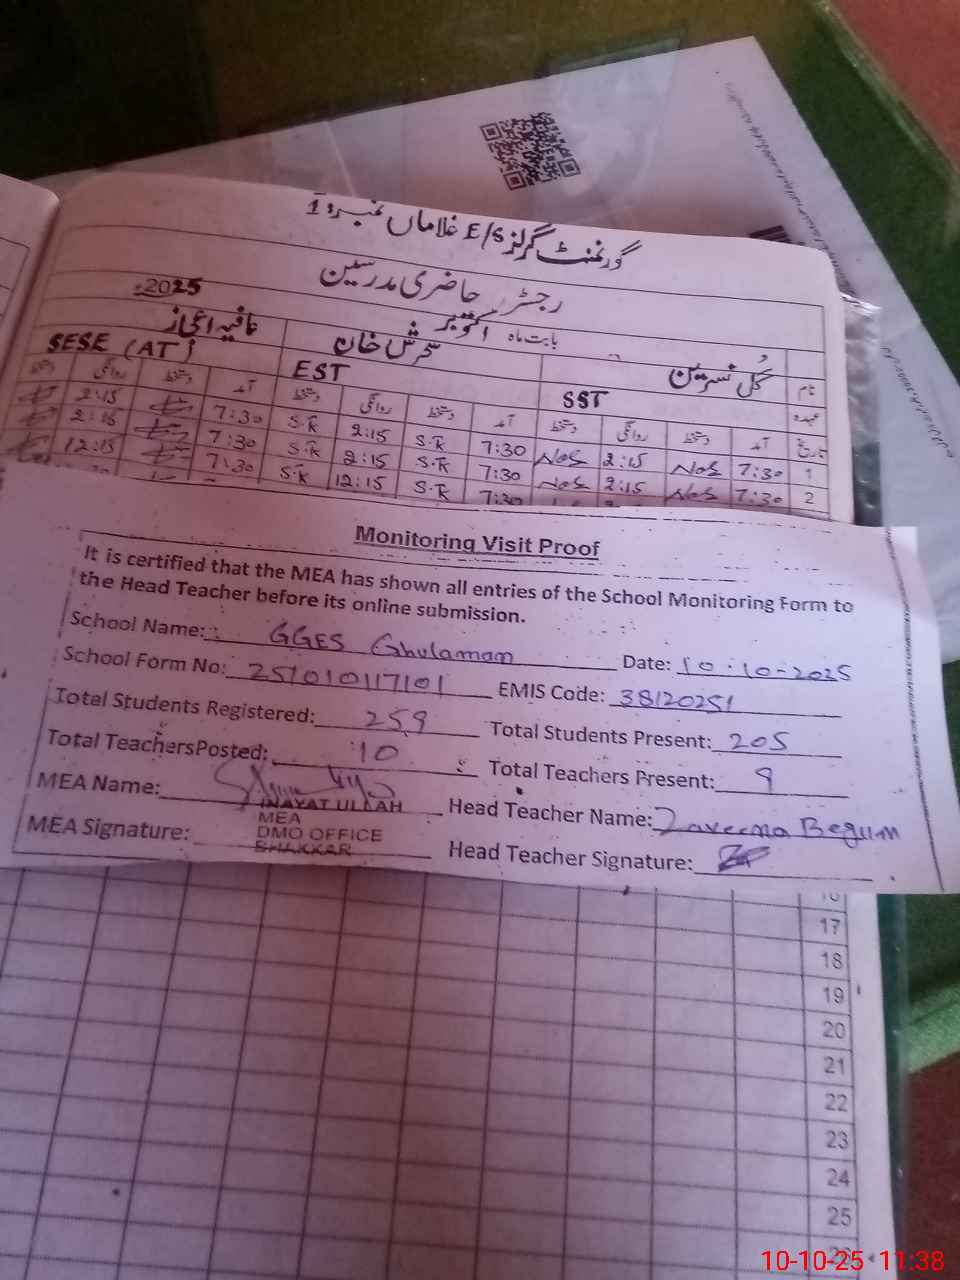 گورنمنٹ گرلز E/S غلاماں نمبر 1
رجسٹر حاضری مدرسین
بابت ماہ اکتوبر 2025
نام گل نسرین سحرش خان عافیہ اعجاز
عہدہ SST EST SESE (AT)
تاریخ آمد دستخط روانگی دستخط آمد دستخط روانگی دستخط آمد دستخط روانگی دستخط
1 7:30 NoS 2:15 NoS 7:30 S.K 2:15 S.K 7:30 2:15
2 7:30 NoS 2:15 NoS 7:30 S.K 2:15 S.K 7:30 2:15
7:30 S.K 12:15 S.K 7:30 12:15
Monitoring Visit Proof
It is certified that the MEA has shown all entries of the School Monitoring Form to
the Head Teacher before its online submission.
School Name: GGES Ghulaman Date: 10-10-2025
School Form No: 251010117101 EMIS Code: 38120251
Total Students Registered: 259 Total Students Present: 205
Total TeachersPosted: 10 Total Teachers Present: 9
MEA Name: INAYAT ULLAH Head Teacher Name: Zaveena Begum
MEA
DMO OFFICE
BHAKKAR
MEA Signature: Head Teacher Signature:
16
17
18
19
20
21
22
23
24
25
26
10-10-25 11:38